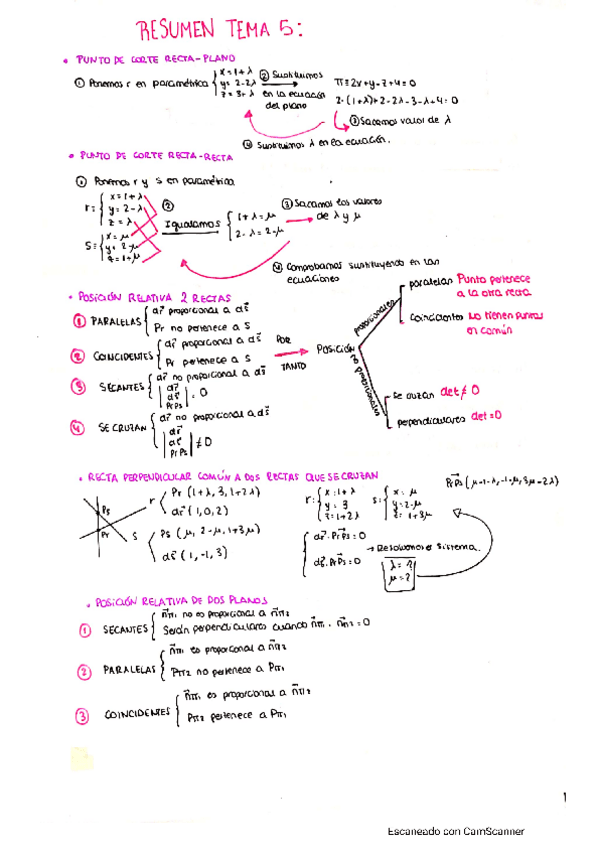 RESUMEN TEMA 5:
• PUNTO DE CORTE RECTA-PLANO
① Ponemos r en paramétrica { x=1+λ y=2-2λ z=3+λ ② Sustituimos en la ecuación del plano π≡2x+y-z+4=0
2·(1+λ)+2-2λ-3-λ+4=0
③ Sacamos valor de λ
④ Sustituimos λ en la ecuación.
• PUNTO DE CORTE RECTA-RECTA
① Ponemos r y s en paramétrica
r: { x=1+λ y=2-λ z=λ
s: { x=μ y=2-μ z=1+μ
② Igualamos { 1+λ=μ 2-λ=2-μ
③ Sacamos los valores de λ y μ
④ Comprobamos sustituyendo en las ecuaciones
• POSICIÓN RELATIVA 2 RECTAS
① PARALELAS { dr⃗ proporcional a ds⃗
Pr no pertenece a S
② COINCIDENTES { dr⃗ proporcional a ds⃗
Pr pertenece a S
③ SECANTES { dr⃗ no proporcional a ds⃗
| dr⃗ ds⃗ PrPs | = 0
④ SE CRUZAN { dr⃗ no proporcional a ds⃗
| dr⃗ ds⃗ PrPs | ≠ 0
POR TANTO
POSICIÓN
proporcionales
paralelas Punto pertenece a la otra recta
coincidentes No tienen puntos en común
no proporcionales
se cruzan det ≠ 0
perpendiculares det = 0
• RECTA PERPENDICULAR COMÚN A DOS RECTAS QUE SE CRUZAN
Ps
Pr
r
s
Pr (1+λ, 3, 1+2λ)
dr⃗ (1, 0, 2)
Ps (μ, 2-μ, 1+3μ)
ds⃗ (1, -1, 3)
r: { x=1+λ y=3 z=1+2λ
s: { x=μ y=2-μ z=1+3μ
PrPs (μ-1-λ, -1-μ, 3μ-2λ)
{ dr⃗·PrPs=0
ds⃗·PrPs=0
→ Resolvemos el sistema.
λ=?
μ=?
• POSICIÓN RELATIVA DE DOS PLANOS
① SECANTES { n⃗π1 no es proporcional a n⃗π2
Serán perpendiculares cuando n⃗π1 · n⃗π2 = 0
② PARALELAS { n⃗π1 es proporcional a n⃗π2
Pπ2 no pertenece a Pπ1
③ COINCIDENTES { n⃗π1 es proporcional a n⃗π2
Pπ2 pertenece a Pπ1
1
Escaneado con CamScanner